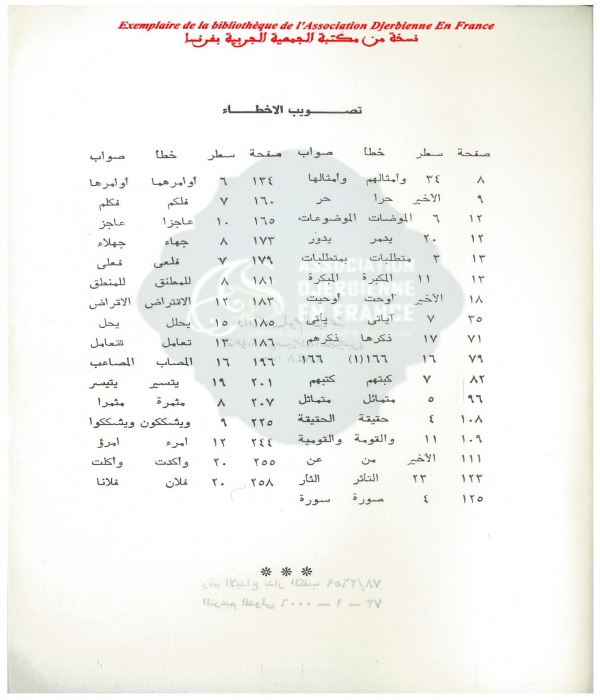 Exemplaire de la bibliothèque de l'Association Djerbienne En France
نسخة من مكتبة الجمعية الجربية بفرنسا
تصويب الاخطاء
صفحة سطر خطأ صواب صفحة سطر خطأ صواب
٨ ٣٤ وأمثالهم وأمثالها ١٣٤ ٦ أوامرهما أوامرها
٩ الأخير حرا حر ١٦٠ ٧ فلكم فكلم
١٢ ٦ الموضات الموضوعات ١٦٥ ١٠ عاجزا عاجز
١٢ ٢٠ يدمر يدور ١٧٣ ٨ جهاء جهلاء
١٣ ٣ متطلبات بمتطلبات ١٧٩ ٧ فلعى فعلى
١٣ ١١ المكبرة المبكرة ١٨١ ٨ للمطنق للمنطق
١٨ الأخير أوحت أوحيت ١٨٣ ١٢ الاقتراض الاقراض
٣٥ ٧ آياتى يأتى ١٨٥ ١٥ يحلل يحل
٧١ ١٧ ذكرها ذكرهم ١٨٦ ١٣ تعامل تتعامل
٧٩ ١٦ ١٦٦(١) ١٦٦ ١٩٦ ١٦ المصاب المصاعب
٨٢ ٧ كبتهم كتبهم ٢٠١ ١٩ يتسير يتيسر
٩٦ ٥ متماثل متماثل ٢٠٧ ٨ مثمرة مثمرا
١٠٨ ٤ حقيقة الحقيقة ٢٢٥ ٩ ويشككون ويشككوا
١٠٩ ١١ والقومة والقومية ٢٤٤ ١٢ امرء امرؤ
١١١ الأخير من عن ٢٥٥ ٢٠ وأكدت وأكلت
١٢٣ ٢٣ التأثر الثأر ٢٥٨ ٢٠ فلان فلانا
١٢٥ ٤ صورة سورة
ASSOCIATION
DJERBIENNE
EN FRANCE
* * *